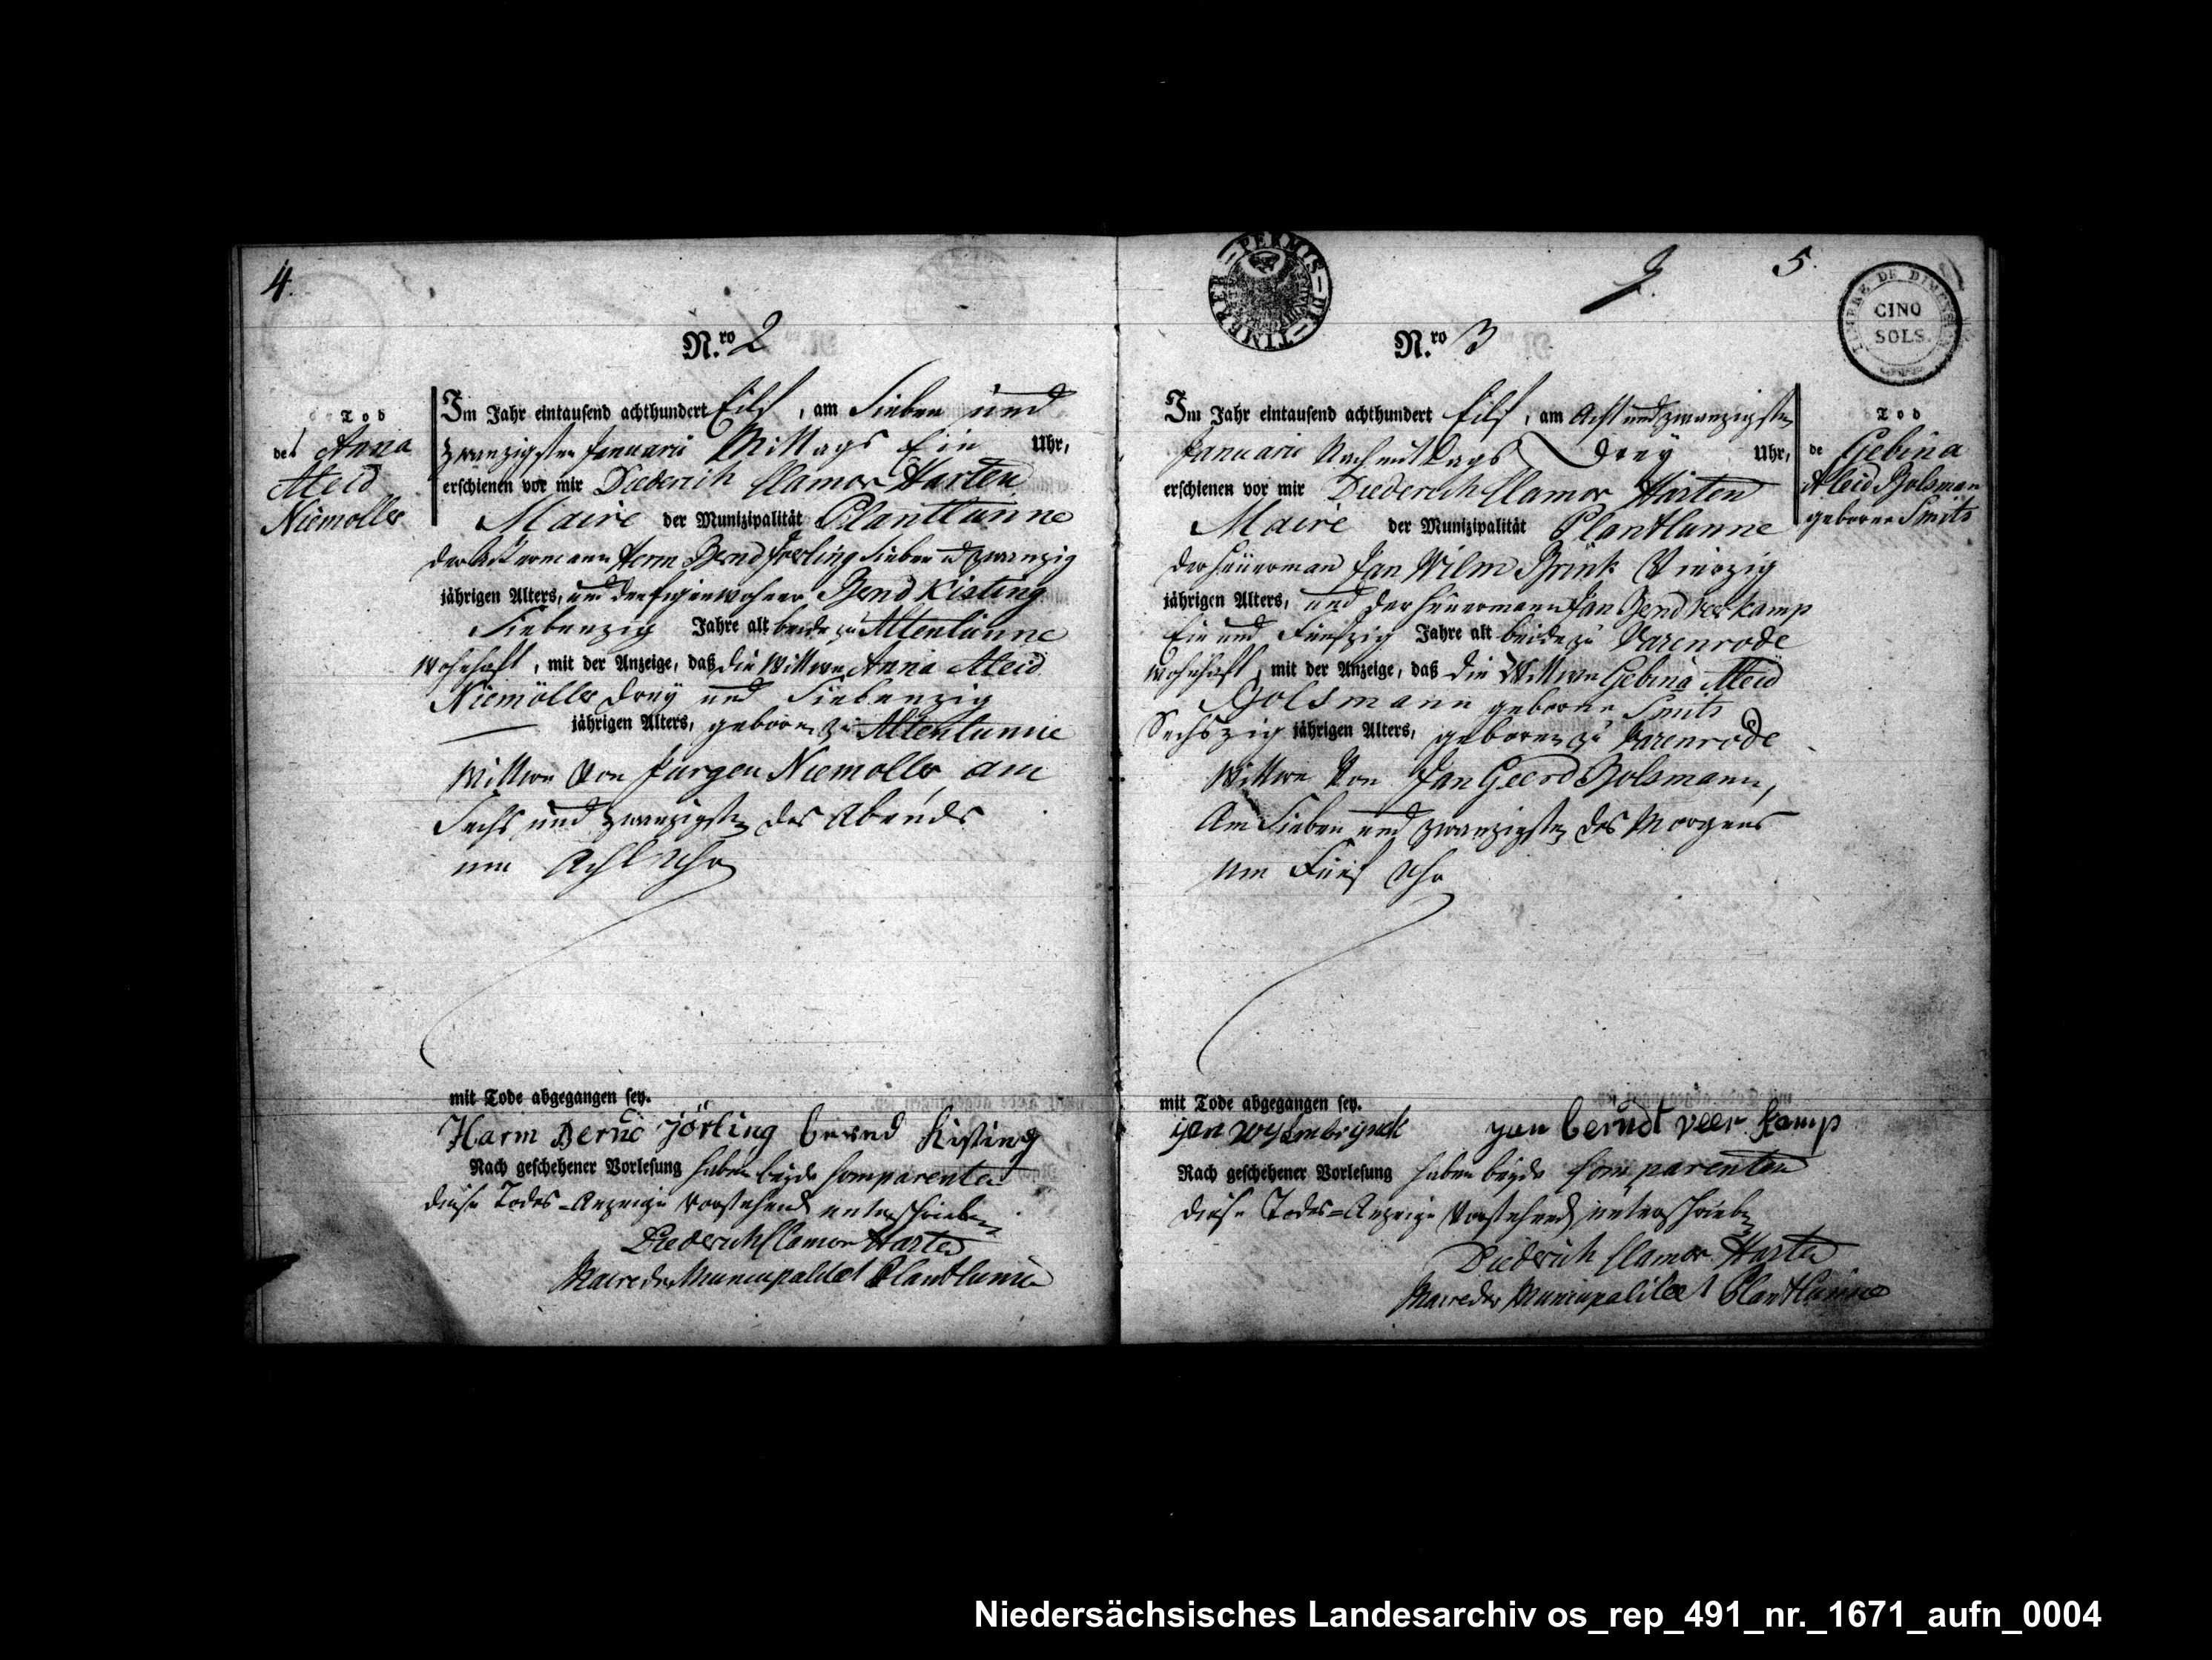 4.
N.ro 2
Tod
der Anna
Aleid
Niemöller
Im Jahr eintausend achthundert Eilf, am Sieben und
zwanzigsten Januarii Mittags Ein Uhr,
erschienen vor mir Diederich Clamor Harten
Maire der Munizipalität Plantlünne
der Ackermann Herm Bernd Joerling Sieben u zwanzig
jährigen Alters, und der Eigenwohner Bernd Kisting
Siebenzig Jahre alt beide zu Altenlünne
wohnhaft, mit der Anzeige, daß die Wittwe Anna Aleid
Niemöller drey und Siebenzig
jährigen Alters, geboren zu Altenlünne
Wittwe von Jurgen Niemoller, am
Sechs und zwanzigsten des Abends
um Acht Uhr
mit Tode abgegangen sey.
Harm Bernd jörling bernd Kisting
Nach geschehener Vorlesung haben beyde Comparenten
diese Todes-Anzeige vorstehend unterschrieben
Diederich Clamor Harten
Maire der Municipalitaet Plantlünne
5.
PERMIS DE TIMBRER
TIMBRE DE DIMENSION
CINQ
SOLS.
N.ro 3
Im Jahr eintausend achthundert Eilf, am Acht und zwanzigsten
Januarii Nachmittags Drey Uhr,
erschienen vor mir Diederich Clamor Harten
Maire der Munizipalität Plantlünne
der Heuerman Jan Wilm Brink Vierzig
jährigen Alters, und der Heuermann Jan Bernd Veerkamp
Ein und Fünfzig Jahre alt beide zu Varenrode
wohnhaft, mit der Anzeige, daß die Wittwe Gebina Aleid
Bolsmann geborne Smits
Sechszig jährigen Alters, geboren zu Varenrode
Wittwe von Jan Geerd Bolsmann,
Am Sieben und zwanzigsten des Morgens
um Fünf Uhr
Tod
de Gebina
Aleid Bolsman
geborne Smits
mit Tode abgegangen sey.
jan wylmbrynck jan berndt veer kamp
Nach geschehener Vorlesung haben beyde Comparenten
diese Todes-Anzeige vorstehend unterschrieben
Diederich Clamor Harten
Maire der Municipalitaet Plantlünne
Niedersächsisches Landesarchiv os_rep_491_nr._1671_aufn_0004